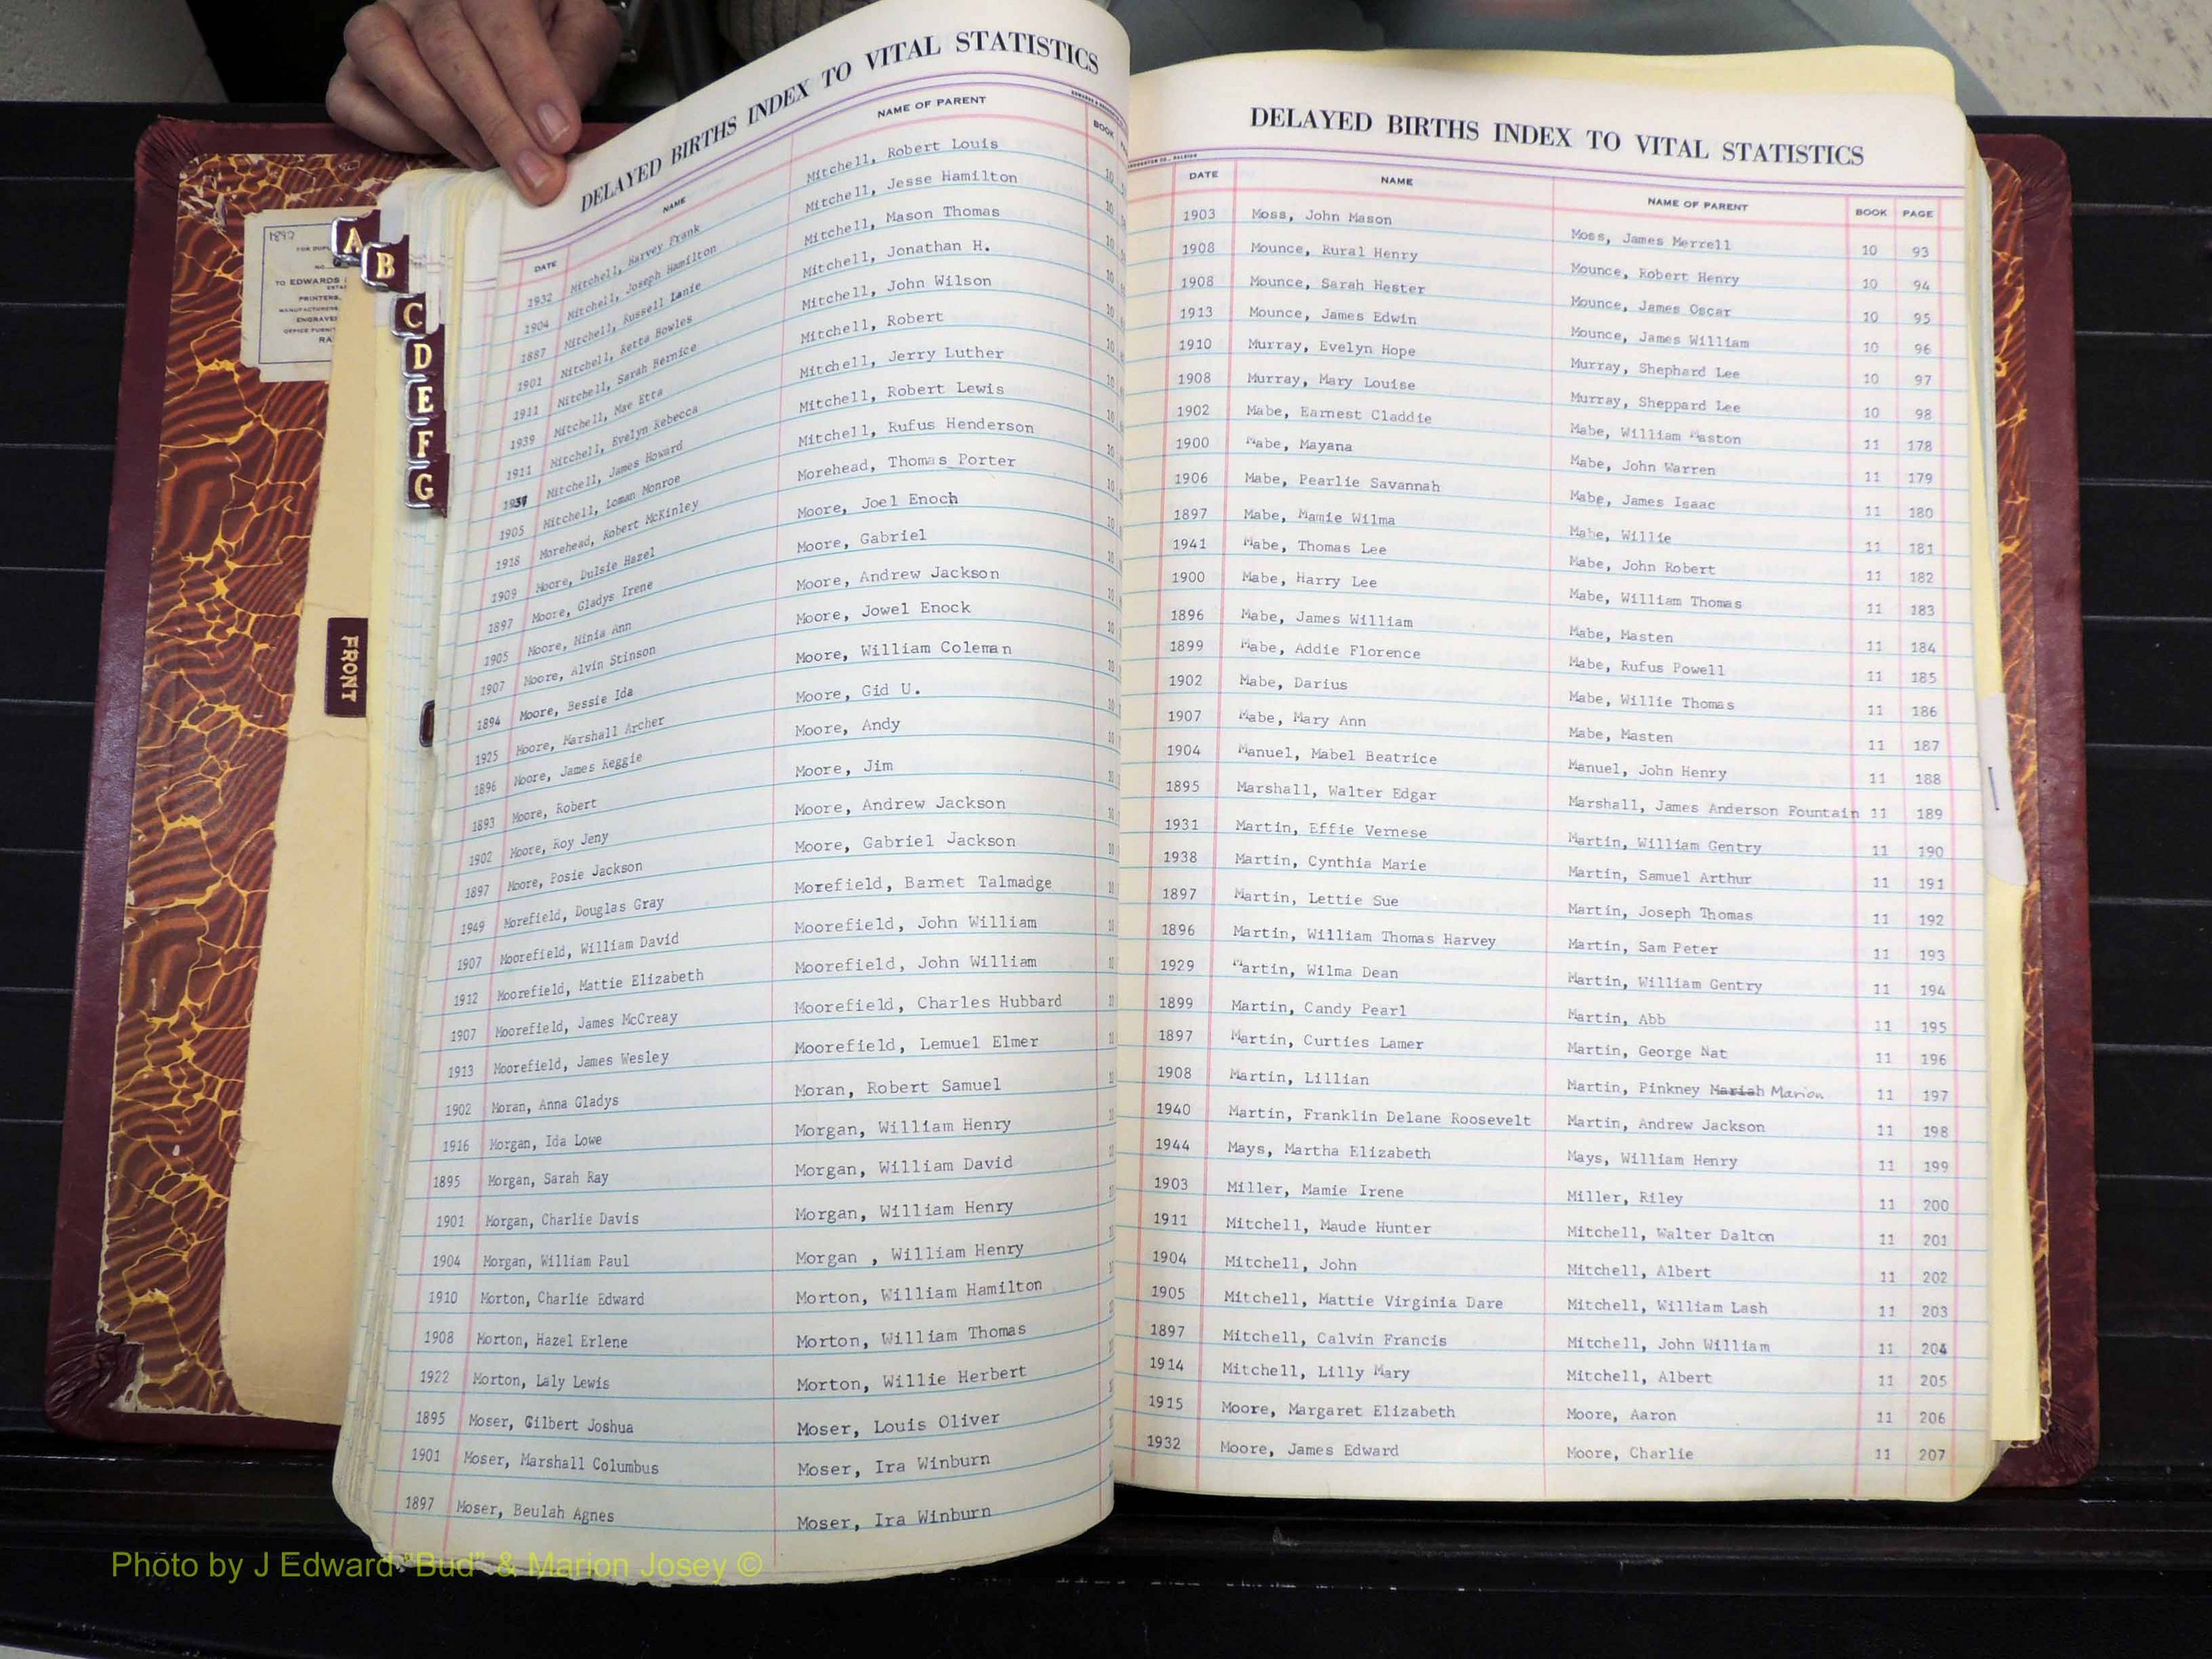 DELAYED BIRTHS INDEX TO VITAL STATISTICS
DATE NAME NAME OF PARENT BOOK
1932 Mitchell, Harvey Frank Mitchell, Robert Louis 10
1904 Mitchell, Joseph Hamilton Mitchell, Jesse Hamilton 10
1887 Mitchell, Russell Lanie Mitchell, Mason Thomas 10
1901 Mitchell, Retta Bowles Mitchell, Jonathan H. 10
1911 Mitchell, Sarah Bernice Mitchell, John Wilson 10
1939 Mitchell, Mae Etta Mitchell, Robert 10
1911 Mitchell, Evelyn Rebecca Mitchell, Jerry Luther 10
1937 Mitchell, James Howard Mitchell, Robert Lewis 10
1905 Mitchell, Loman Monroe Mitchell, Rufus Henderson 10
1918 Morehead, Robert McKinley Morehead, Thomas Porter 10
1909 Moore, Dulsie Hazel Moore, Joel Enoch 10
1897 Moore, Gladys Irene Moore, Gabriel 10
1905 Moore, Minia Ann Moore, Andrew Jackson 10
1907 Moore, Alvin Stinson Moore, Jowel Enock 10
1894 Moore, Bessie Ida Moore, William Coleman 10
1925 Moore, Marshall Archer Moore, Gid U. 10
1896 Moore, James Reggie Moore, Andy 10
1893 Moore, Robert Moore, Jim 10
1902 Moore, Roy Jeny Moore, Andrew Jackson 10
1897 Moore, Posie Jackson Moore, Gabriel Jackson 10
1949 Morefield, Douglas Gray Morefield, Barnet Talmadge
1907 Moorefield, William David Moorefield, John William
1912 Moorefield, Mattie Elizabeth Moorefield, John William
1907 Moorefield, James McCreay Moorefield, Charles Hubbard
1913 Moorefield, James Wesley Moorefield, Lemuel Elmer
1902 Moran, Anna Gladys Moran, Robert Samuel
1916 Morgan, Ida Lowe Morgan, William Henry
1895 Morgan, Sarah Ray Morgan, William David
1901 Morgan, Charlie Davis Morgan, William Henry
1904 Morgan, William Paul Morgan , William Henry
1910 Morton, Charlie Edward Morton, William Hamilton
1908 Morton, Hazel Erlene Morton, William Thomas
1922 Morton, Laly Lewis Morton, Willie Herbert
1895 Moser, Gilbert Joshua Moser, Louis Oliver
1901 Moser, Marshall Columbus Moser, Ira Winburn
1897 Moser, Beulah Agnes Moser, Ira Winburn
DELAYED BIRTHS INDEX TO VITAL STATISTICS
DATE NAME NAME OF PARENT BOOK PAGE
1903 Moss, John Mason Moss, James Merrell 10 93
1908 Mounce, Rural Henry Mounce, Robert Henry 10 94
1908 Mounce, Sarah Hester Mounce, James Oscar 10 95
1913 Mounce, James Edwin Mounce, James William 10 96
1910 Murray, Evelyn Hope Murray, Shephard Lee 10 97
1908 Murray, Mary Louise Murray, Sheppard Lee 10 98
1902 Mabe, Earnest Claddie Mabe, William Maston 11 178
1900 Mabe, Mayana Mabe, John Warren 11 179
1906 Mabe, Pearlie Savannah Mabe, James Isaac 11 180
1897 Mabe, Mamie Wilma Mabe, Willie 11 181
1941 Mabe, Thomas Lee Mabe, John Robert 11 182
1900 Mabe, Harry Lee Mabe, William Thomas 11 183
1896 Mabe, James William Mabe, Masten 11 184
1899 Mabe, Addie Florence Mabe, Rufus Powell 11 185
1902 Mabe, Darius Mabe, Willie Thomas 11 186
1907 Mabe, Mary Ann Mabe, Masten 11 187
1904 Manuel, Mabel Beatrice Manuel, John Henry 11 188
1895 Marshall, Walter Edgar Marshall, James Anderson Fountain 11 189
1931 Martin, Effie Vernese Martin, William Gentry 11 190
1938 Martin, Cynthia Marie Martin, Samuel Arthur 11 191
1897 Martin, Lettie Sue Martin, Joseph Thomas 11 192
1896 Martin, William Thomas Harvey Martin, Sam Peter 11 193
1929 Martin, Wilma Dean Martin, William Gentry 11 194
1899 Martin, Candy Pearl Martin, Abb 11 195
1897 Martin, Curties Lamer Martin, George Nat 11 196
1908 Martin, Lillian Martin, Pinkney Mariah Marion 11 197
1940 Martin, Franklin Delane Roosevelt Martin, Andrew Jackson 11 198
1944 Mays, Martha Elizabeth Mays, William Henry 11 199
1903 Miller, Mamie Irene Miller, Riley 11 200
1911 Mitchell, Maude Hunter Mitchell, Walter Dalton 11 201
1904 Mitchell, John Mitchell, Albert 11 202
1905 Mitchell, Mattie Virginia Dare Mitchell, William Lash 11 203
1897 Mitchell, Calvin Francis Mitchell, John William 11 204
1914 Mitchell, Lilly Mary Mitchell, Albert 11 205
1915 Moore, Margaret Elizabeth Moore, Aaron 11 206
1932 Moore, James Edward Moore, Charlie 11 207
A
B
C
D
E
F
G
FRONT
TO EDWARDS
PRINTERS,
Photo by J Edward "Bud" & Marion Josey ©